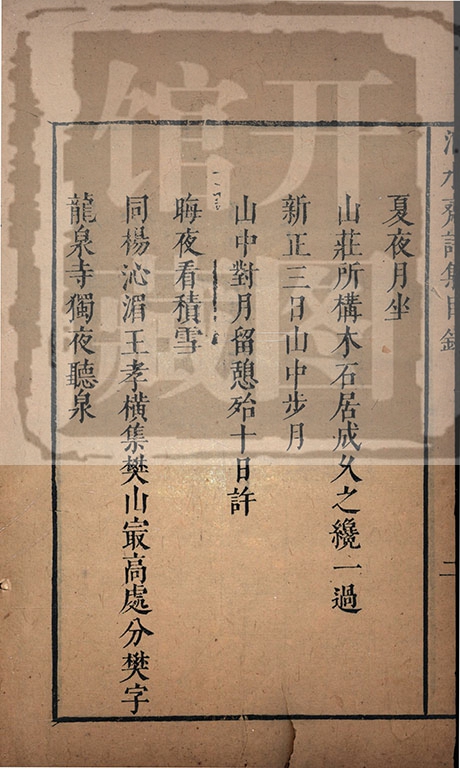 夏夜月坐
山莊所構木石居成久之纔一過
新正三日山中步月
山中對月留憩殆十日許
晦夜看積雪
同楊沁湄王孝橫集樊山最高處分樊字
龍泉寺獨夜聽泉
齋詩集目錄
二
开图
馆藏